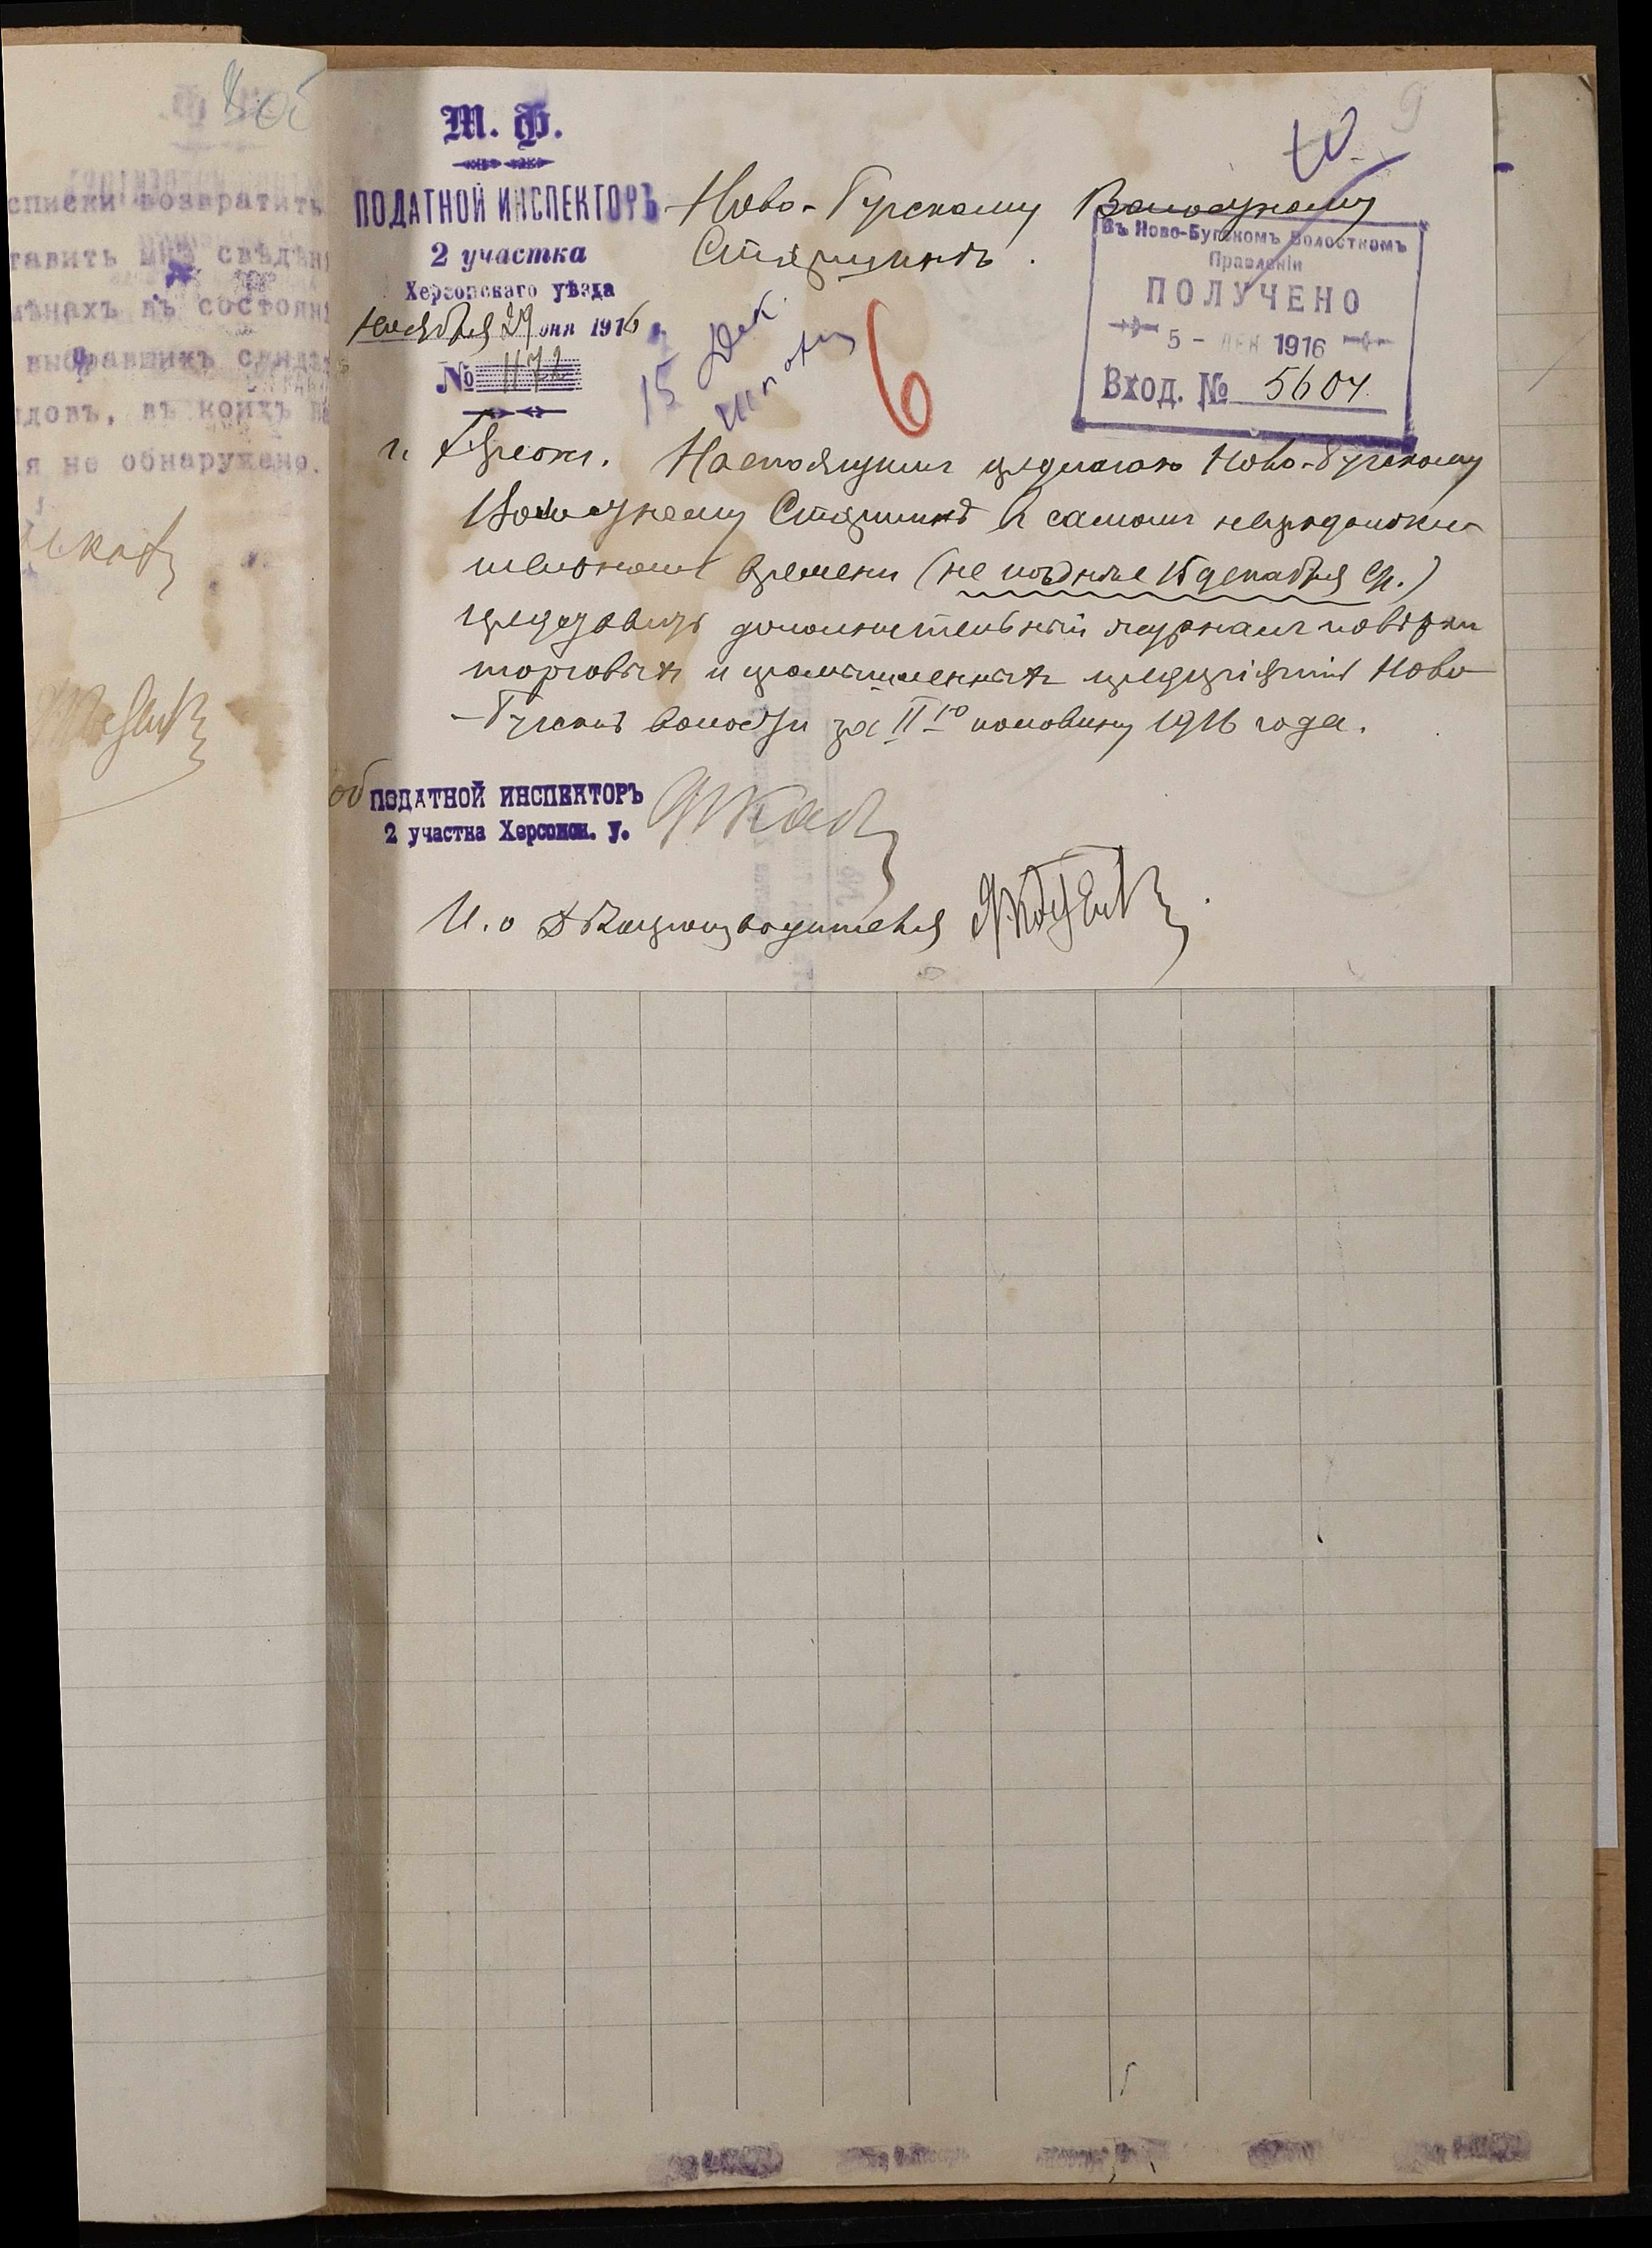 списки возвратить
тавить мнѣ свѣдѣн
мѣнахъ въ состоян
выбравшихъ свидѣ
довъ, въ коихъ
я не обнаружено.
М. Ф.
ПОДАТНОЙ ИНСПЕКТОРЪ
2 участка
Херсонскаго уѣзда
Ноября 29 дня 1916
№ 1172
г. Херсон.
10
9
Ново-Бугскому Волостному
Старшинѣ.
15 Дек
6
Въ Ново-Бугскомъ Волостномъ
Правленіи
ПОЛУЧЕНО
5 - ДЕК 1916
Вход. № 5604
Настоящим предлагаю Ново-Бугскому
Волостному Старшинѣ в самом непродолжи-
тельном времени (не позднѣе 15 декабря ср.)
представить дополнительный журнал повѣрки
торговых и промышленных предпріятій Ново-
-Бугской волости за II ую половину 1916 года.
ПОДАТНОЙ ИНСПЕКТОРЪ
2 участка Херсонск. у.
И. о Дѣлопроизводителя